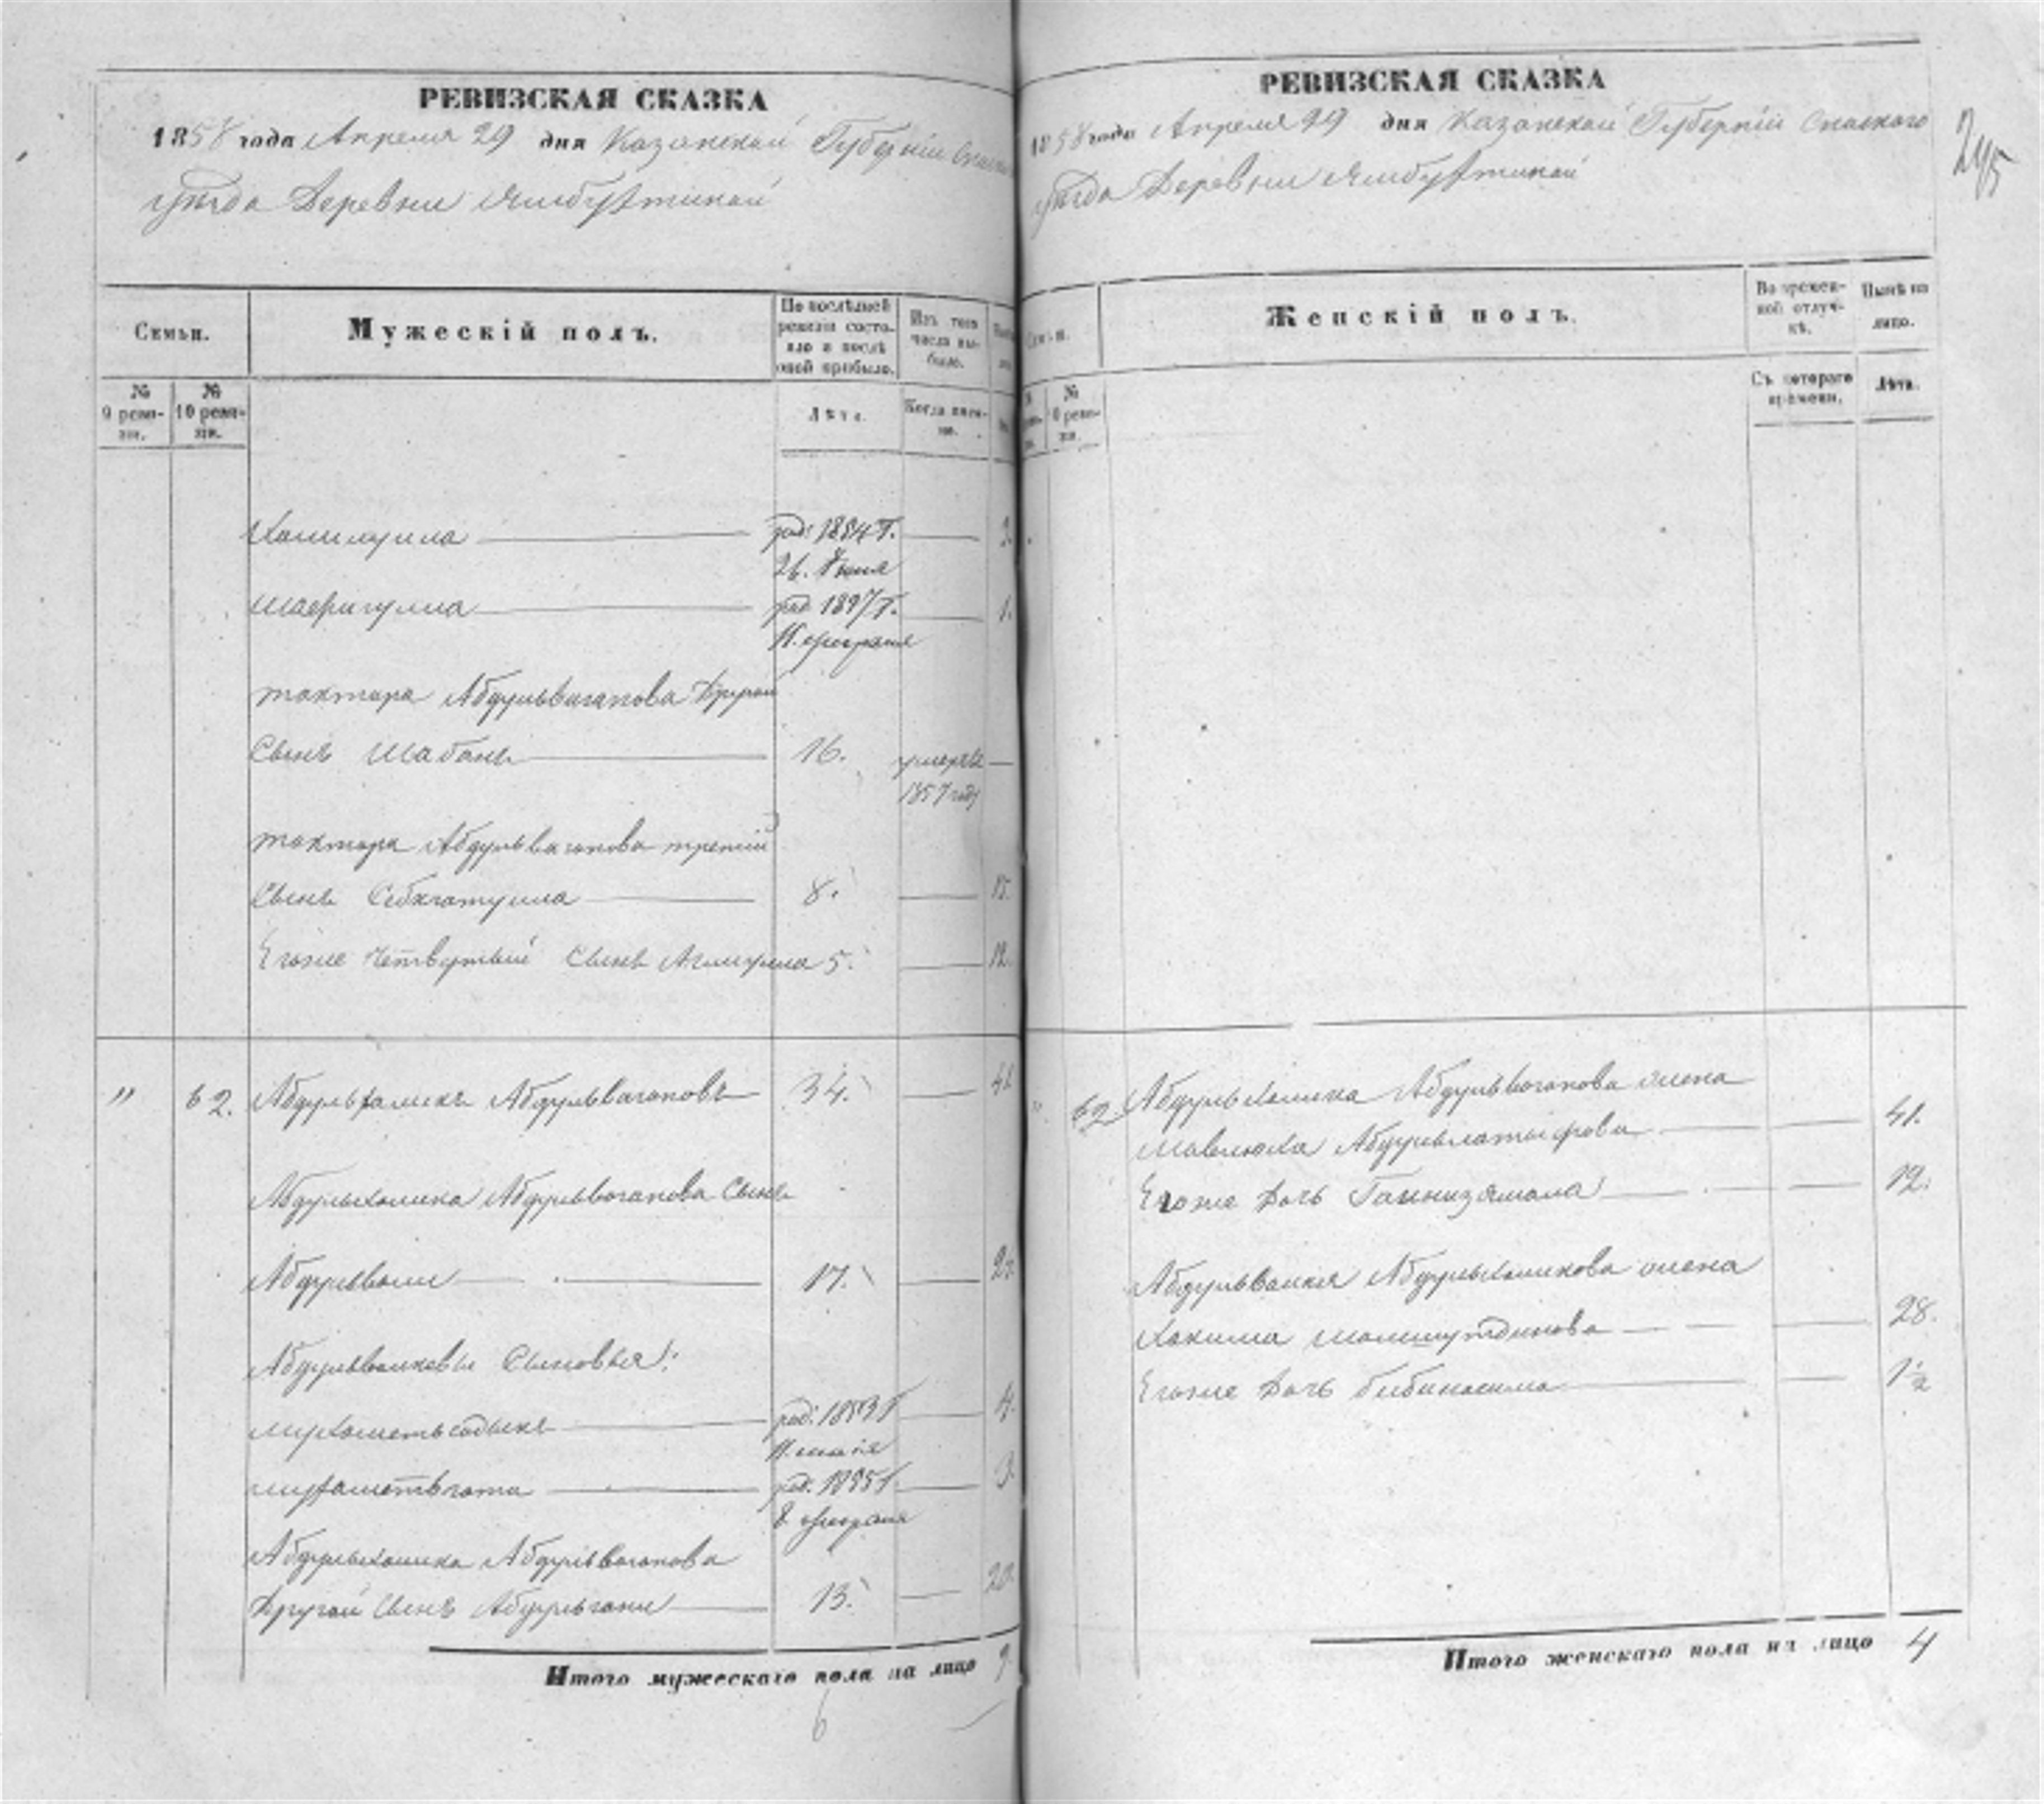 РЕВИЗСКАЯ СКАЗКА
1858 года Апреля 29 дня Казанской Губерніи
уѣзда Деревни Ямбухтиной
Семьи.
Мужескій полъ.
По послѣдней ревизіи состояло и послѣ оной прибыло.
Изъ того числа выбыло.
№ 9 ревизіи.
№ 10 ревизіи.
Лѣта.
Когда именно.
род: 1854 г. 2.
26. Іюня
Шафигулла род 1857 г. 1.
11. февраля
Абдулвагапова другой
Сынъ Шабанъ 16. умеръ в
1857 году
Абдулвагапова третий
Сынъ Себхатулла 8. 15.
Егоже четвертый Сынъ 5. 12.
" 62. Абдулхаликъ Абдулвагаповъ 34.
Абдулхалика Абдулвагапова Сынъ
Абдулвали 17.
Сыновья:
Мухаметьсадыкъ род. 1853 г 4.
11. маія
род. 1855 г. 3.
8. февраля
Абдулхалика Абдулвагапова
Другой Сынъ Абдулгани 13. 20.
Итого мужескаго пола на лицо 9.
6
РЕВИЗСКАЯ СКАЗКА
1858 года Апреля 29 дня Казанской Губерніи Спаскаго
уѣзда Деревни Ямбухтиной
245
Женскій полъ.
Во временной отлучкѣ.
Нынѣ на лицо.
№ 10 ревизіи.
Съ котораго времени.
Лѣта.
" 62. Абдулхалика Абдулвагапова жена
Абдуллатыфова 41.
Егоже дочь 12.
Абдулвалия Абдулхаликова жена
Хакима 28.
Егоже дочь 1½
Итого женскаго пола на лицо 4